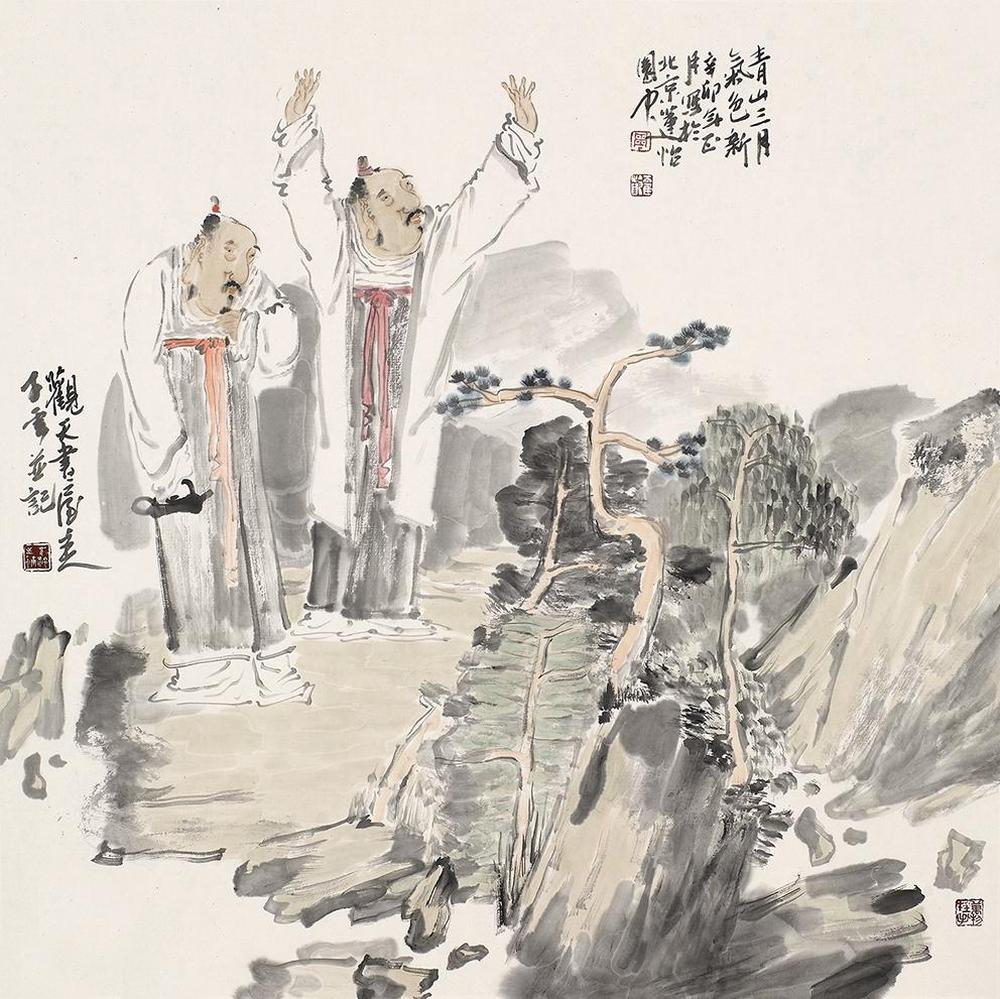 青山三月
氣色新
辛卯年正
月寫於
北京蓮怡
園中
觀天書屋主
並記